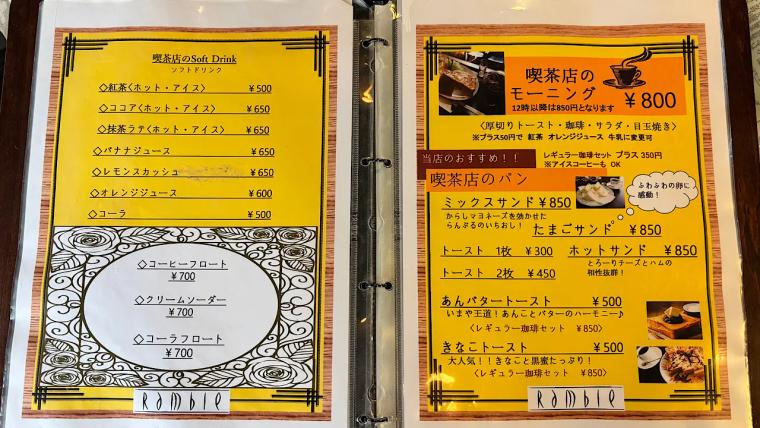 喫茶店のSoft Drink
ソフトドリンク
◇紅茶〈ホット・アイス〉 ￥500
◇ココア〈ホット・アイス〉 ￥650
◇抹茶ラテ〈ホット・アイス〉 ￥650
◇バナナジュース ￥650
◇レモンスカッシュ ￥650
◇オレンジジュース ￥600
◇コーラ ￥500
◇コーヒーフロート
￥700
◇クリームソーダー
￥700
◇コーラフロート
￥700
RAMBlE
喫茶店の
モーニング
12時以降は850円となります ￥800
〈厚切りトースト・珈琲・サラダ・目玉焼き〉
※プラス50円で 紅茶 オレンジジュース 牛乳に変更可
当店のおすすめ！！
レギュラー珈琲セット プラス 350円
※アイスコーヒーも OK
喫茶店のパン
ふわふわの卵に
感動！
ミックスサンド ￥850
からしマヨネーズを効かせた
らんぶるのいちおし！
たまごサンド ￥850
トースト 1枚 ￥300
ホットサンド ￥850
とろーりチーズとハムの
相性抜群！
トースト 2枚 ￥450
あんバタートースト ￥500
いまや王道！あんことバターのハーモニー♪
〈レギュラー珈琲セット ￥850〉
きなこトースト ￥500
大人気！！きなこと黒蜜たっぷり！
〈レギュラー珈琲セット ￥850〉
RAMBlE